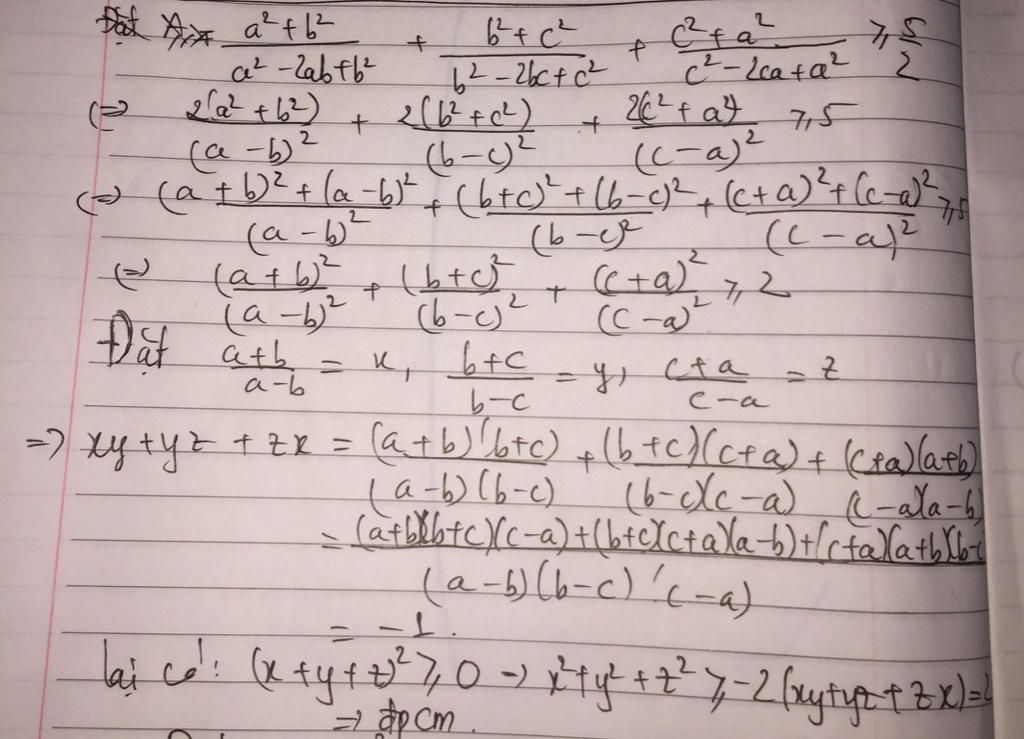 Đặt a² + b² / a² - 2ab + b² + b² + c² / b² - 2bc + c² + c² + a² / c² - 2ca + a² ⩾ 5/2
(=) 2(a² + b²) / (a - b)² + 2(b² + c²) / (b - c)² + 2(c² + a²) / (c - a)² ⩾ 5
(=) (a + b)² + (a - b)² / (a - b)² + (b + c)² + (b - c)² / (b - c)² + (c + a)² + (c - a)² / (c - a)² ⩾ 5
(=) (a + b)² / (a - b)² + (b + c)² / (b - c)² + (c + a)² / (c - a)² ⩾ 2
Đặt a + b / a - b = x, b + c / b - c = y, c + a / c - a = z
=> xy + yz + zx = (a + b)(b + c) / (a - b)(b - c) + (b + c)(c + a) / (b - c)(c - a) + (c + a)(a + b) / (c - a)(a - b)
= (a+b)(b+c)(c-a) + (b+c)(c+a)(a-b) + (c+a)(a+b)(b-c / (a - b)(b - c)(c - a)
= -1.
lại có: (x + y + z)² ⩾ 0 → x² + y² + z² ⩾ -2(xy + yz + zx) = 2
=> đpcm.